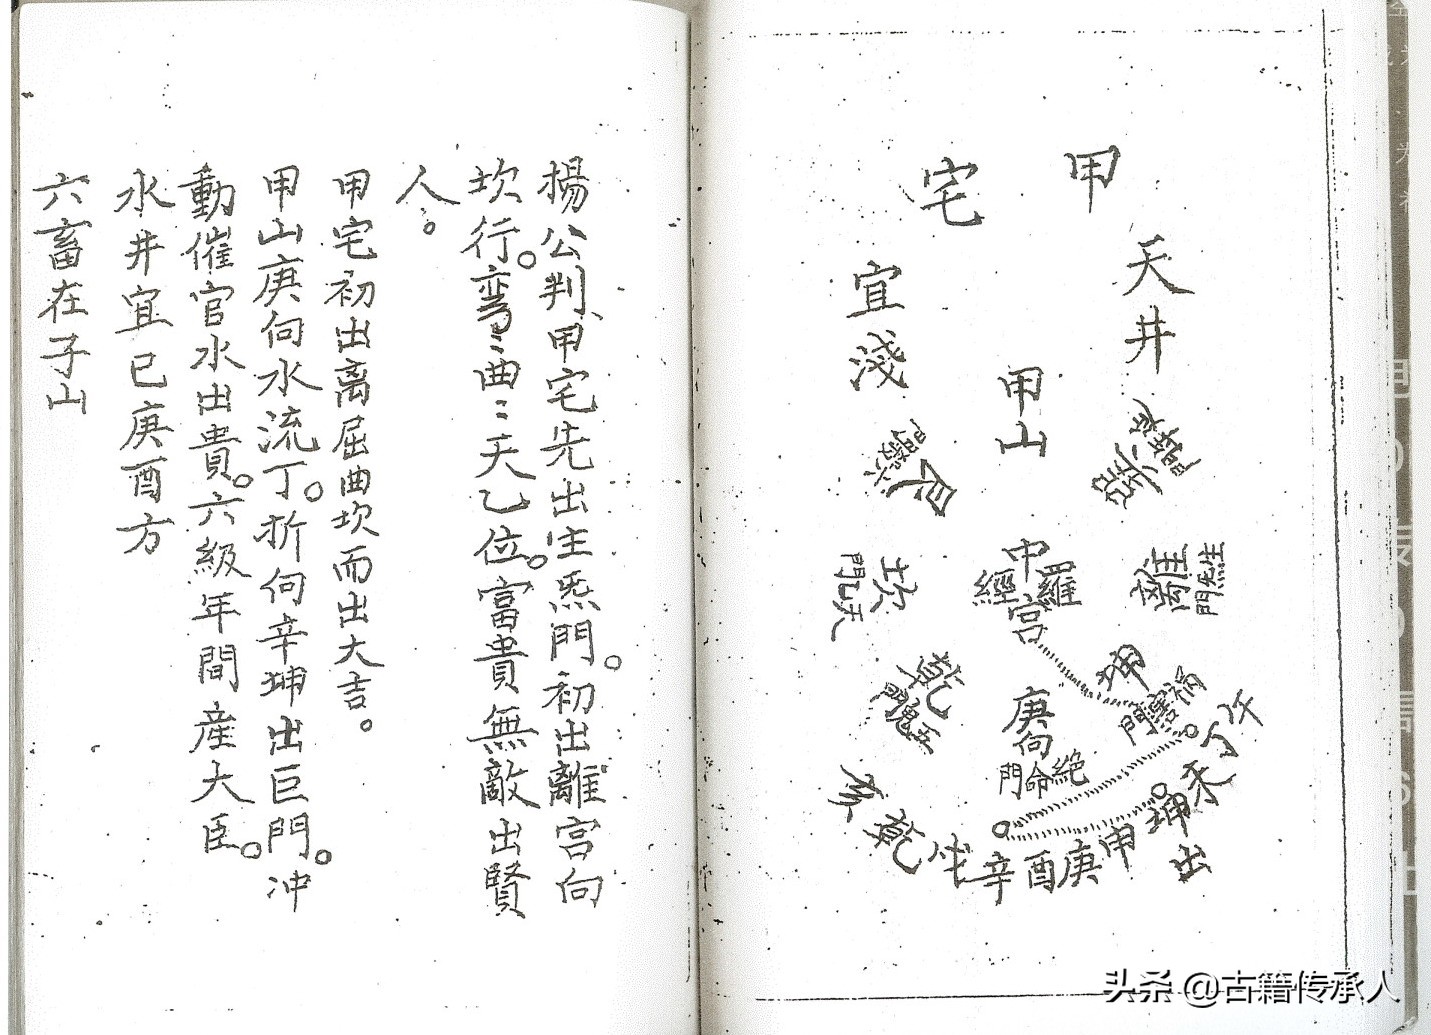 甲宅
天井
宜淺
甲山
巽
艮
離
生炁門
坎
天乙門
中宫
羅經
坤
禍害門
乾
五䰟門
庚向
絶命門
午
丁
未
坤出
申
庚
酉
辛
戌
乾
亥
揚公判、甲宅先出生炁門。初出離宫向
坎行。弯〻曲〻天乙位。富貴無敵出賢
人。
甲宅初出离屈曲坎而出大吉。
甲山庚向水流丁。折向辛坤出巨門。冲
動催官水出貴。六級年間産大臣。
水井宜巳庚酉方
六畜在子山
头条 @古籍传承人